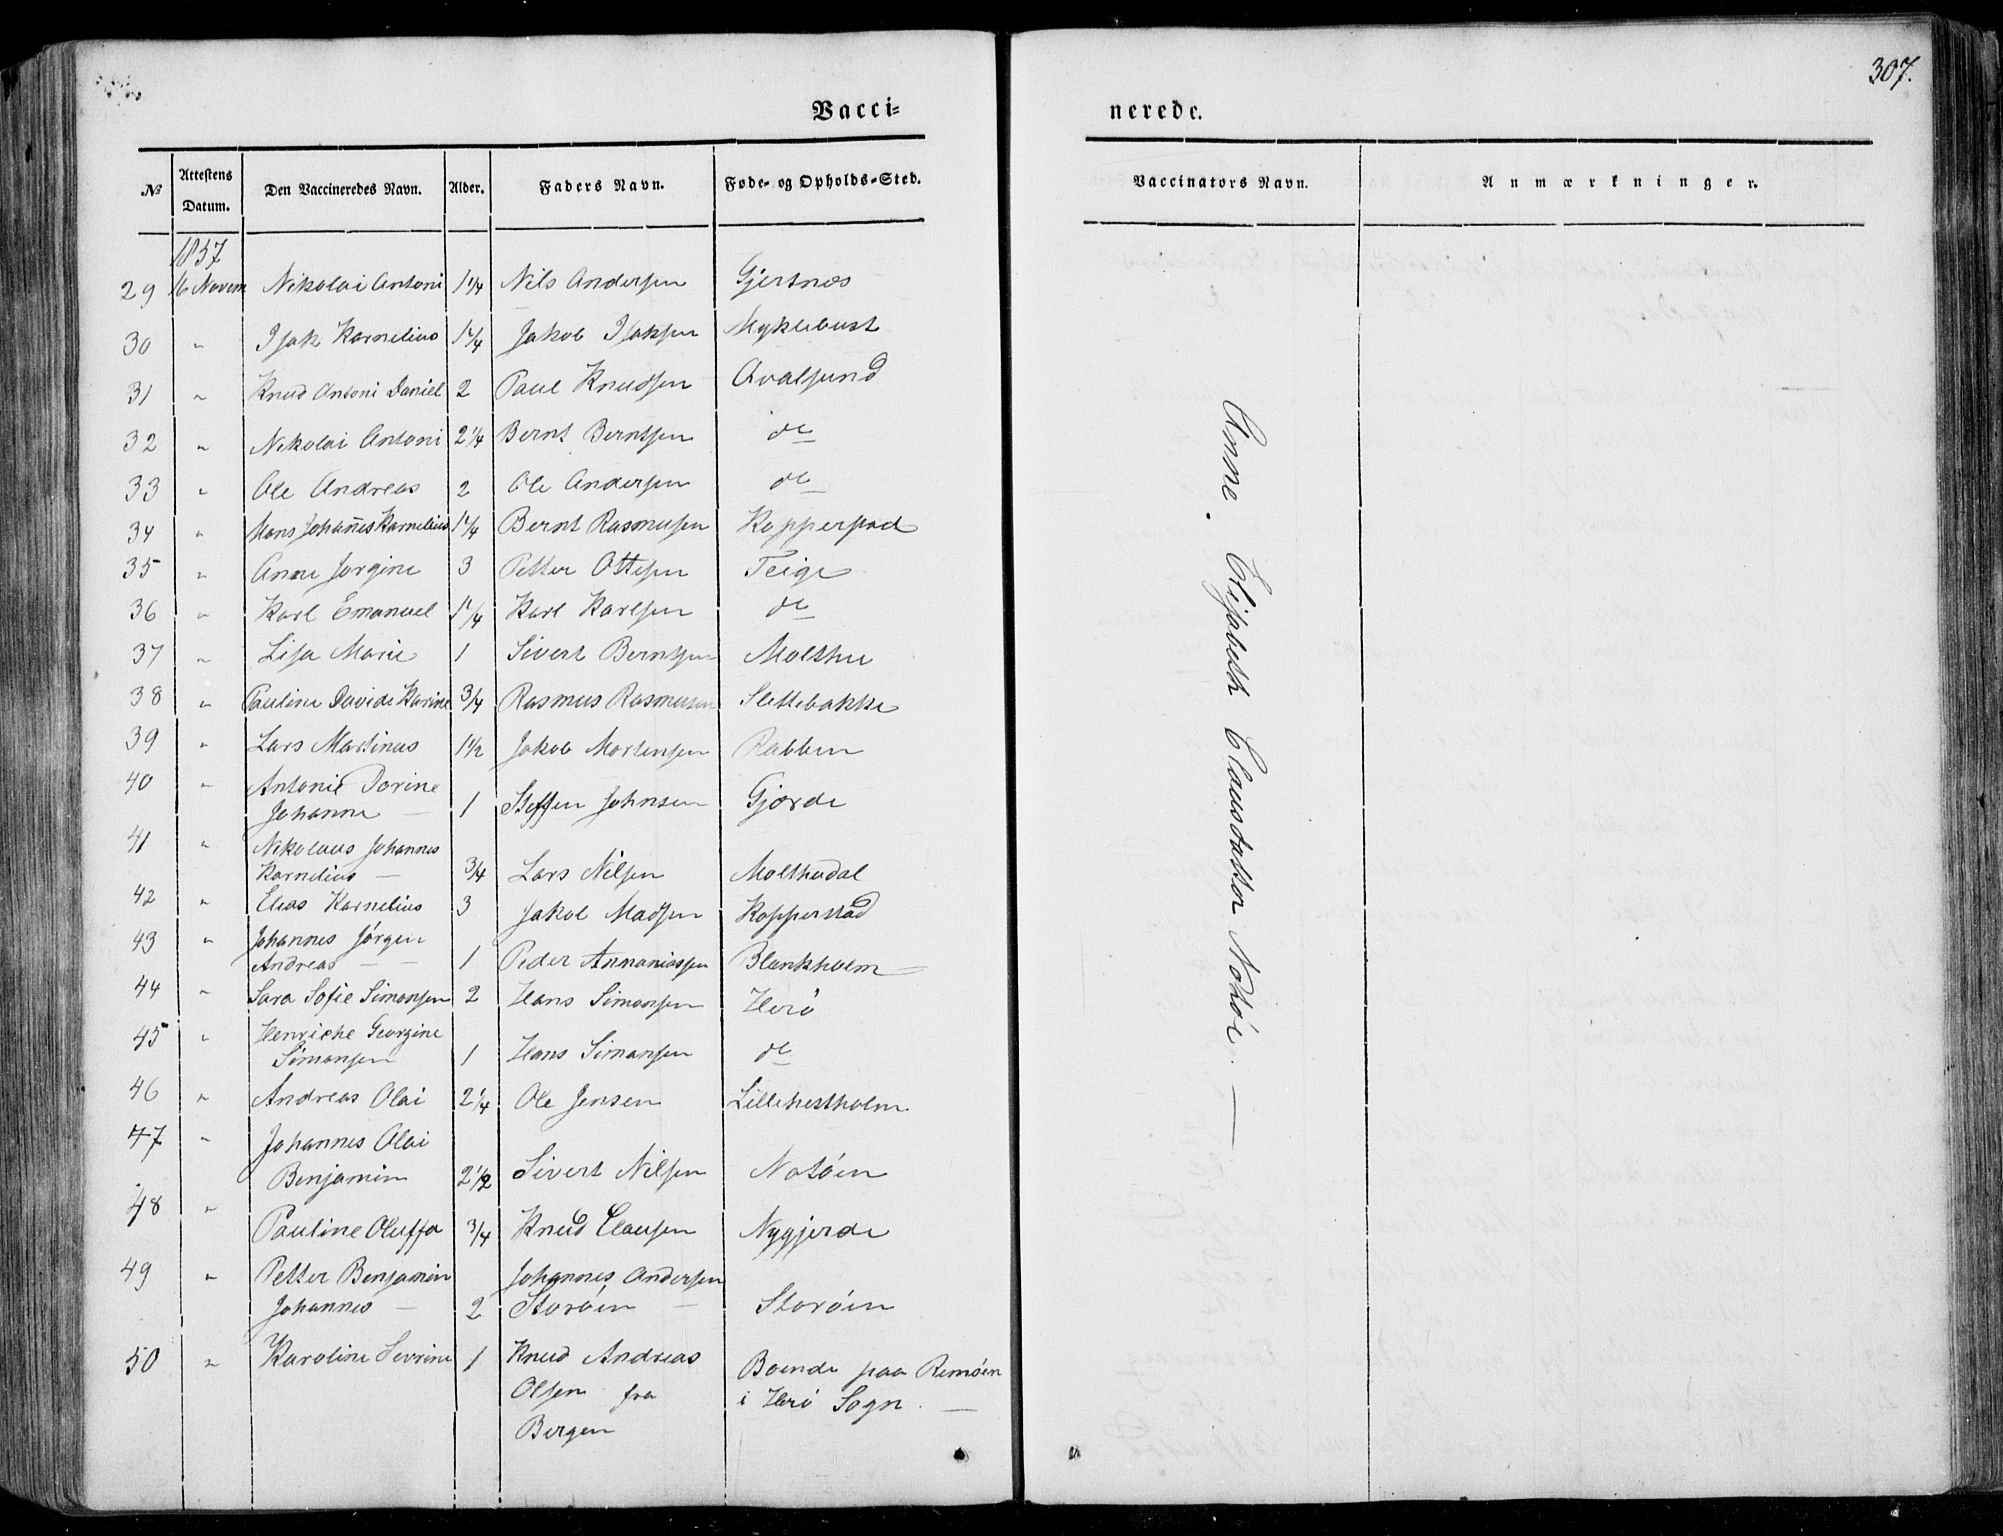 307.
Vacci-
nerede.
No Attestens Datum. Den Vaccineredes Navn. Alder. Faders Navn. Føde- og Opholds-Sted. Vaccinators Navn. Anmærkninger.
1857
29 16 Novem Nikolai Antoni 1 1/4 Nils Andersen Gjertnæs
30 " Isak Kornelius 1 1/4 Jakob Isaksen Myklebust
31 " Knud Antoni Daniel 2 Paul Knudsen Qvalsund
32 " Nikolai Antoni 2 1/4 Bernt Berntsen do
33 " Ole Andreas 2 Ole Andersen do
34 " Hans Johan̄es Kornelius 1 1/4 Bernt Rasmusen Kopperstad
35 " Anne Jorgine 3 Petter Ottesen Teige
36 " Karl Emanuel 1 1/4 Karl Karlsen do
37 " Lisa Marie 1 Sivert Berntsen Molthu
38 " Pauline Davide Karine 3/4 Rasmus Rasmusen Slettebakke
39 " Lars Martinus 1 1/2 Jakob Mortensen Rabben
40 " Antonie Dorine
Johanne — 1 Steffen Johnsen Gjærde
41 " Nikolaus Johannes
Kornelius — 3/4 Lars Nilsen Molthudal
42 " Elias Kornelius 3 Jakob Madsen Kopperstad
43 " Johannes Jørgen
Andreas — — 1 Peder Annaniassen Blankholm
44 " Sara Sofie Simonsen 2 Hans Simonsen Herö
45 " Henrikke Georgine
Simonsen 1 Hans Simonsen do
46 " Andreas Olai 2 1/4 Ole Jensen Lillehestholm
47 " Johannes Olai
Benjamin 2 1/2 Sivert Nilsen Notöen
48 " Pauline Oluffa 3/4 Knud Clausen Nygjerde
49 " Petter Benjamin Johannes Andersen
Johannes — 2 Storöen — Storöen
50 " Karoline Sevrine 1 Knud Andreas Boende paa Remöen
Olsen fra i Herö Sogn. —
Bergen
Anne. Elisabeth Clausdatter Notöe. —